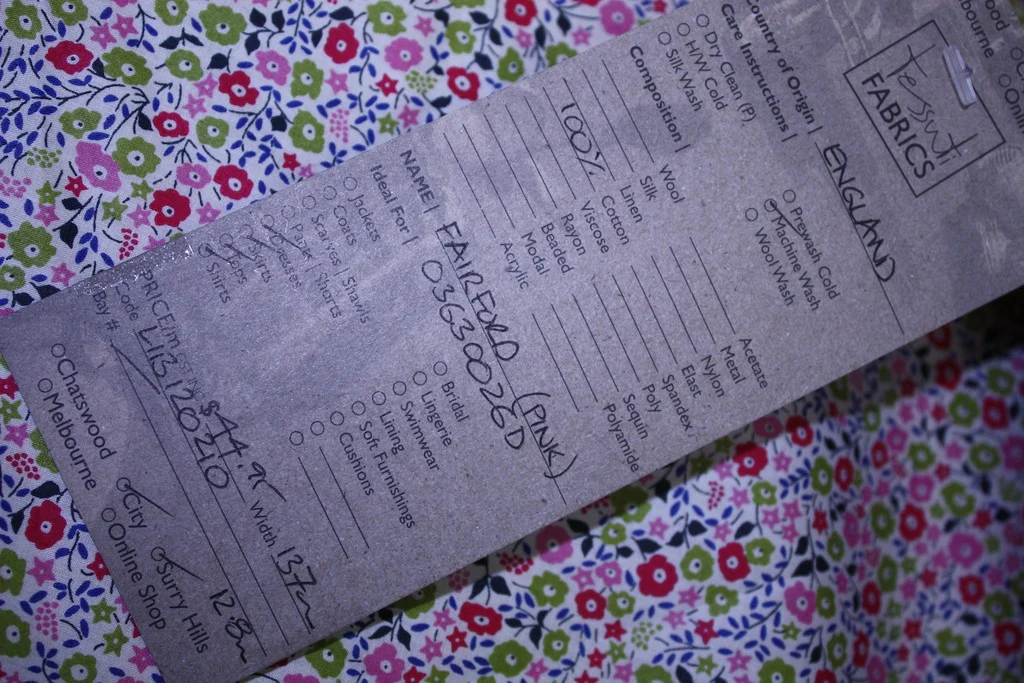 Tessuti
FABRICS
Country of Origin | ENGLAND
Care Instructions |
Dry Clean (P)
H/W Cold
Silk Wash
Prewash Cold
Machine Wash
Wool Wash
Composition |
Wool
Silk
Linen
100% Cotton
Viscose
Rayon
Beaded
Modal
Acrylic
Acetate
Metal
Nylon
Elast
Spandex
Poly
Sequin
Polyamide
NAME | FAIRFORD (PINK)
03630026D
Ideal For |
Jackets
Coats
Scarves | Shawls
Pants | Shorts
Dresses
Skirts
Tops
Shirts
Bridal
Lingerie
Swimwear
Lining
Soft Furnishings
Cushions
PRICE/m $44.95 Width 137cm
Code L113120210
Bay # 12.8m
Chatswood
Melbourne
City
Online Shop
Surry Hills